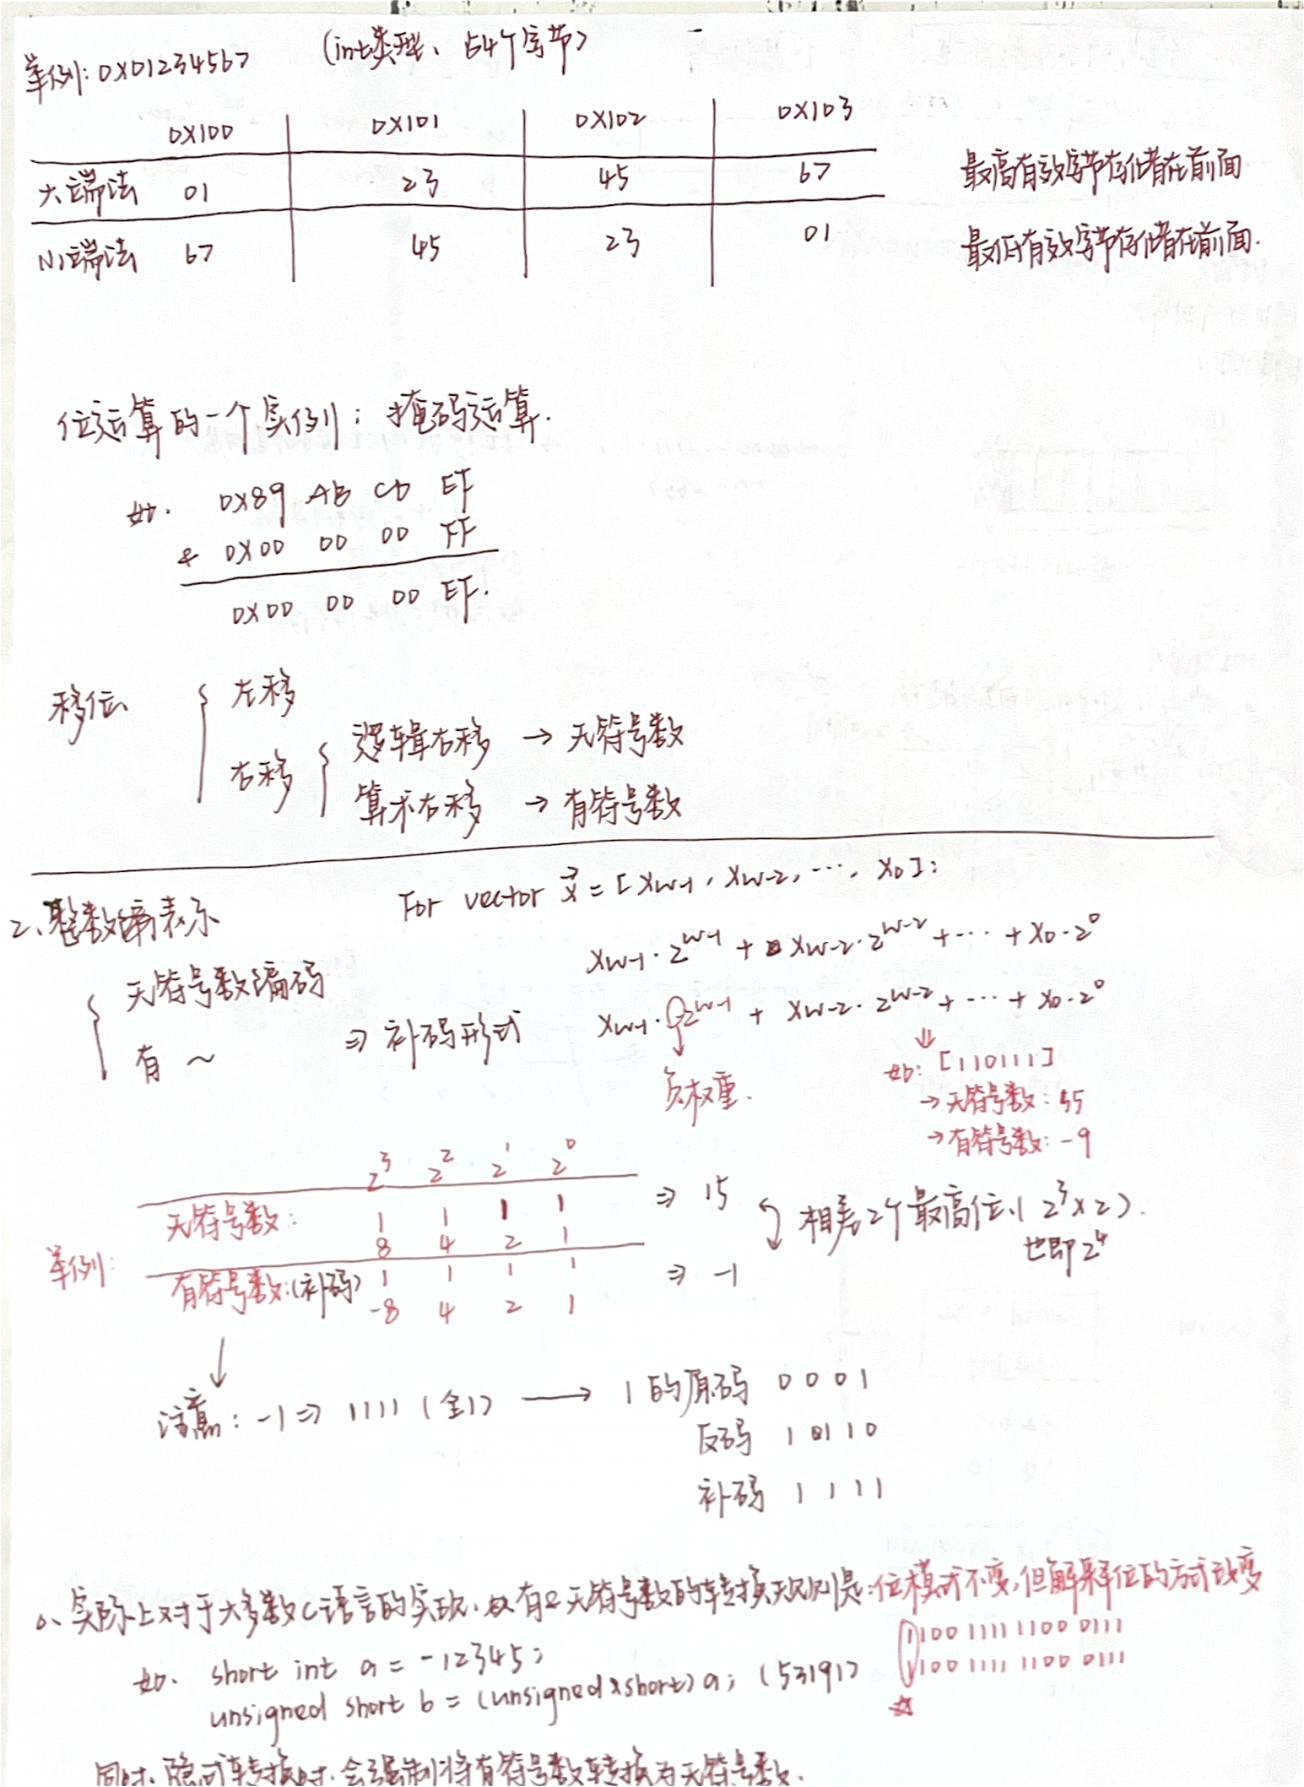 举例: 0X01234567 (int类型、占4个字节)
0X100 0X101 0X102 0X103
大端法 01 23 45 67 最高有效字节存储在前面
小端法 67 45 23 01 最低有效字节存储在前面.
位运算的一个实例: 掩码运算.
如. 0X89 AB CD EF
& 0X00 00 00 FF
0X00 00 00 EF.
移位 { 左移
右移 { 逻辑右移 → 无符号数
算术右移 → 有符号数
2、整数编码表示 For vector x⃗ = [Xw-1, Xw-2, ⋯, X0]:
{ 无符号数编码 Xw-1·2^w-1 + Xw-2·2^w-2 + ⋯ + X0·2^0
有 ~ ⇒ 补码形式 Xw-1·-2^w-1 + Xw-2·2^w-2 + ⋯ + X0·2^0
负权重.
如: [110111]
→ 无符号数: 55
→ 有符号数: -9
举例:
2^3 2^2 2^1 2^0
无符号数: 1 1 1 1 ⇒ 15
8 4 2 1
有符号数:(补码) 1 1 1 1 ⇒ -1
-8 4 2 1
相差2个最高位 (2^3×2).
也即2^4
注意: -1 ⇒ 1111 (全1) → 1的原码 0001
反码 1 110
补码 1111
实际上对于大多数C语言的实现, 有&无符号数的转换规则是:位模式不变,但解释位的方式改变
如. short int a = -12345; 1100 1111 1100 0111
unsigned short b = (unsigned short) a; (53191) 1100 1111 1100 0111
同时,隐式转换时,会强制将有符号数转换为无符号数.